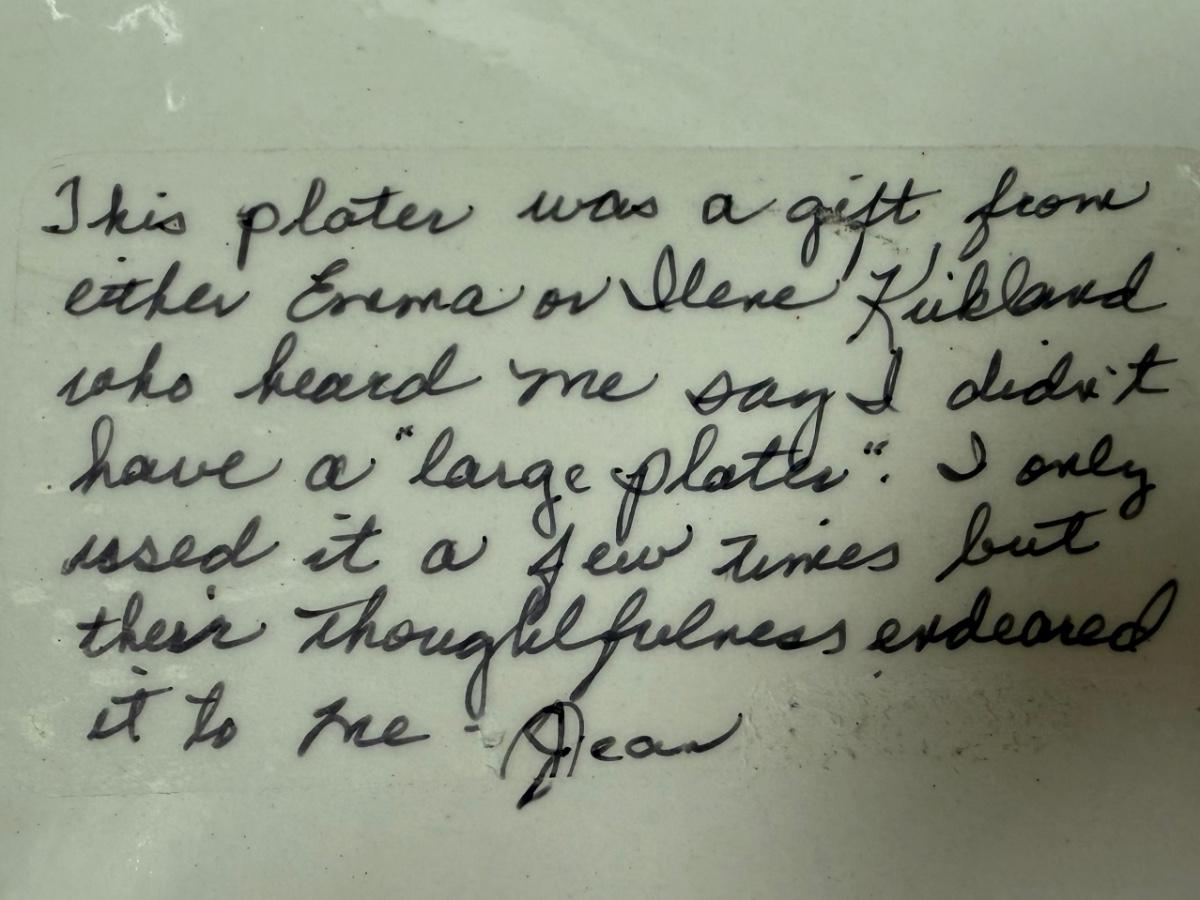 This plater was a gift from
either Emma or Ilene Kirkland
who heard me say I didn't
have a "large plater". I only
used it a few times but
their thoughtfulness endeared
it to me - Jean